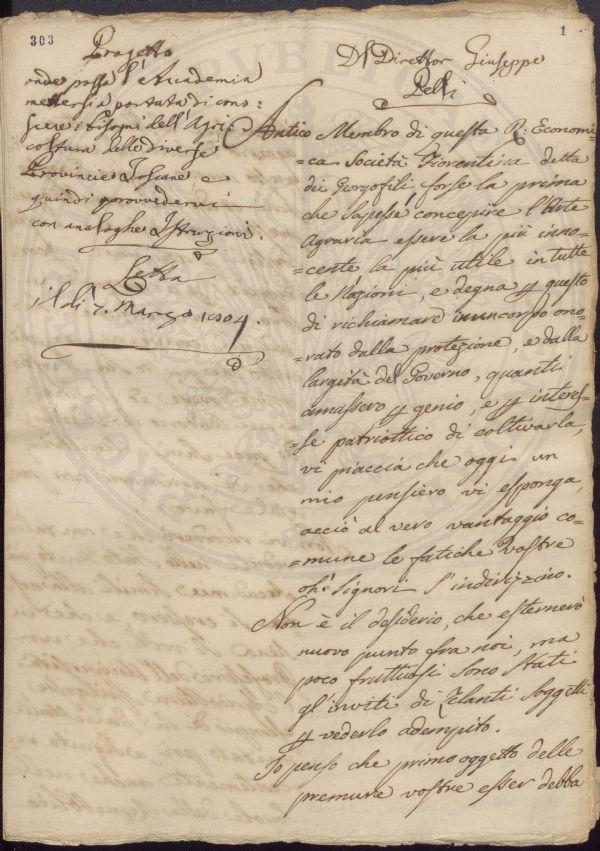 303
1
Progetto
onde possa l'Accademia
mettersi a portata di cono=
scere i bisogni dell'Agri=
coltura delle diverse
Provincie Toscane e
quindi provvedervi
con analoghe Istruzioni.
Letta
il dì 7. Marzo 1804.
Del Direttor Giuseppe
Pelli
Antico Membro di questa R: Economi=
=ca Società Fiorentina detta
dei Gorgofili forse la prima
che sapesse concepire l'Arte
Agraria essere la più inno=
=cente la più utile in tutte
le Nazioni, e degna p questo
di richiamare in un corso ono=
=rato dalla protezione, e dalla
largità del Governo, quanti
amassero p genio, e p interes=
=se patriottico di coltivarla,
vi piaccia che oggi un
mio pensiero vi esponga,
acciò al vero vantaggio co=
=mune le fatiche Vostre
oh! Signori s'indirizzino.
Non è il desiderio, che esternerò
nuovo punto fra noi, ma
poco fruttuosi sono stati
gl'inviti di Zelanti soggetti
p vederlo adempito.
Io penso che primo oggetto delle
premure vostre esser debba